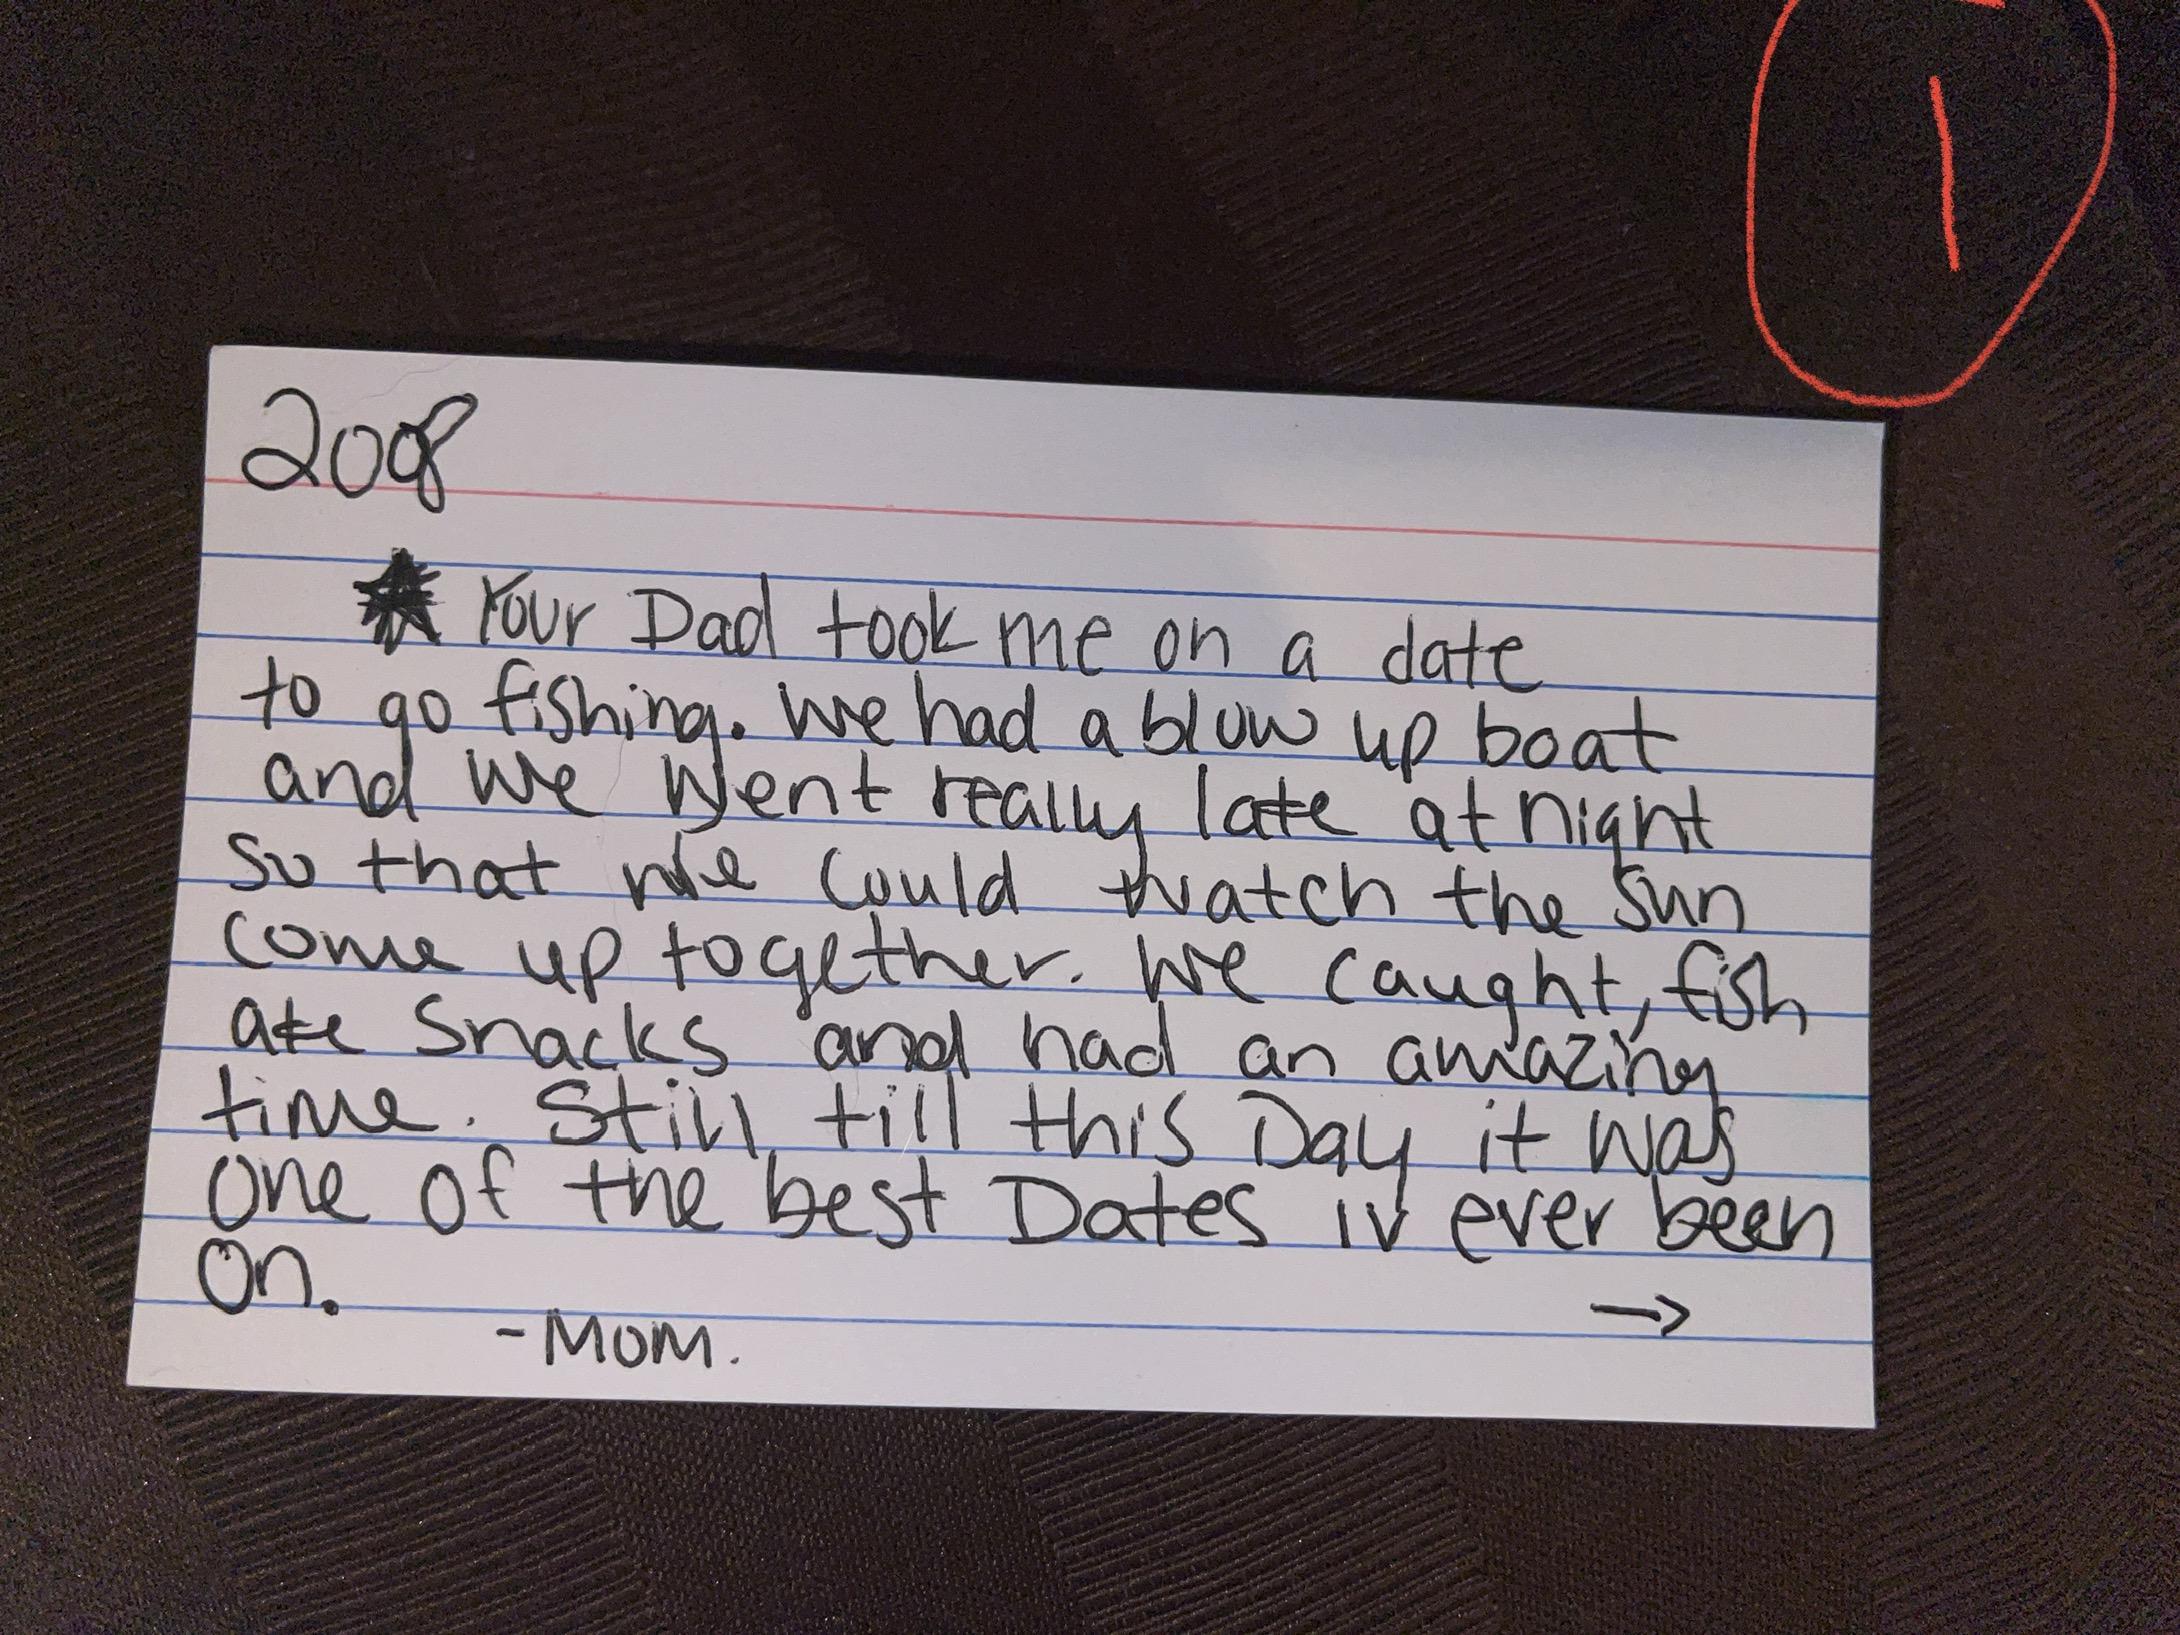 1
2008
★ Your Dad took me on a date
to go fishing. We had a blow up boat
and we went really late at night
so that we could watch the sun
come up together. We caught, fish
ate snacks and had an amazing
time. Still till this Day it was
one of the best Dates iv ever been
on.
→
-Mom.